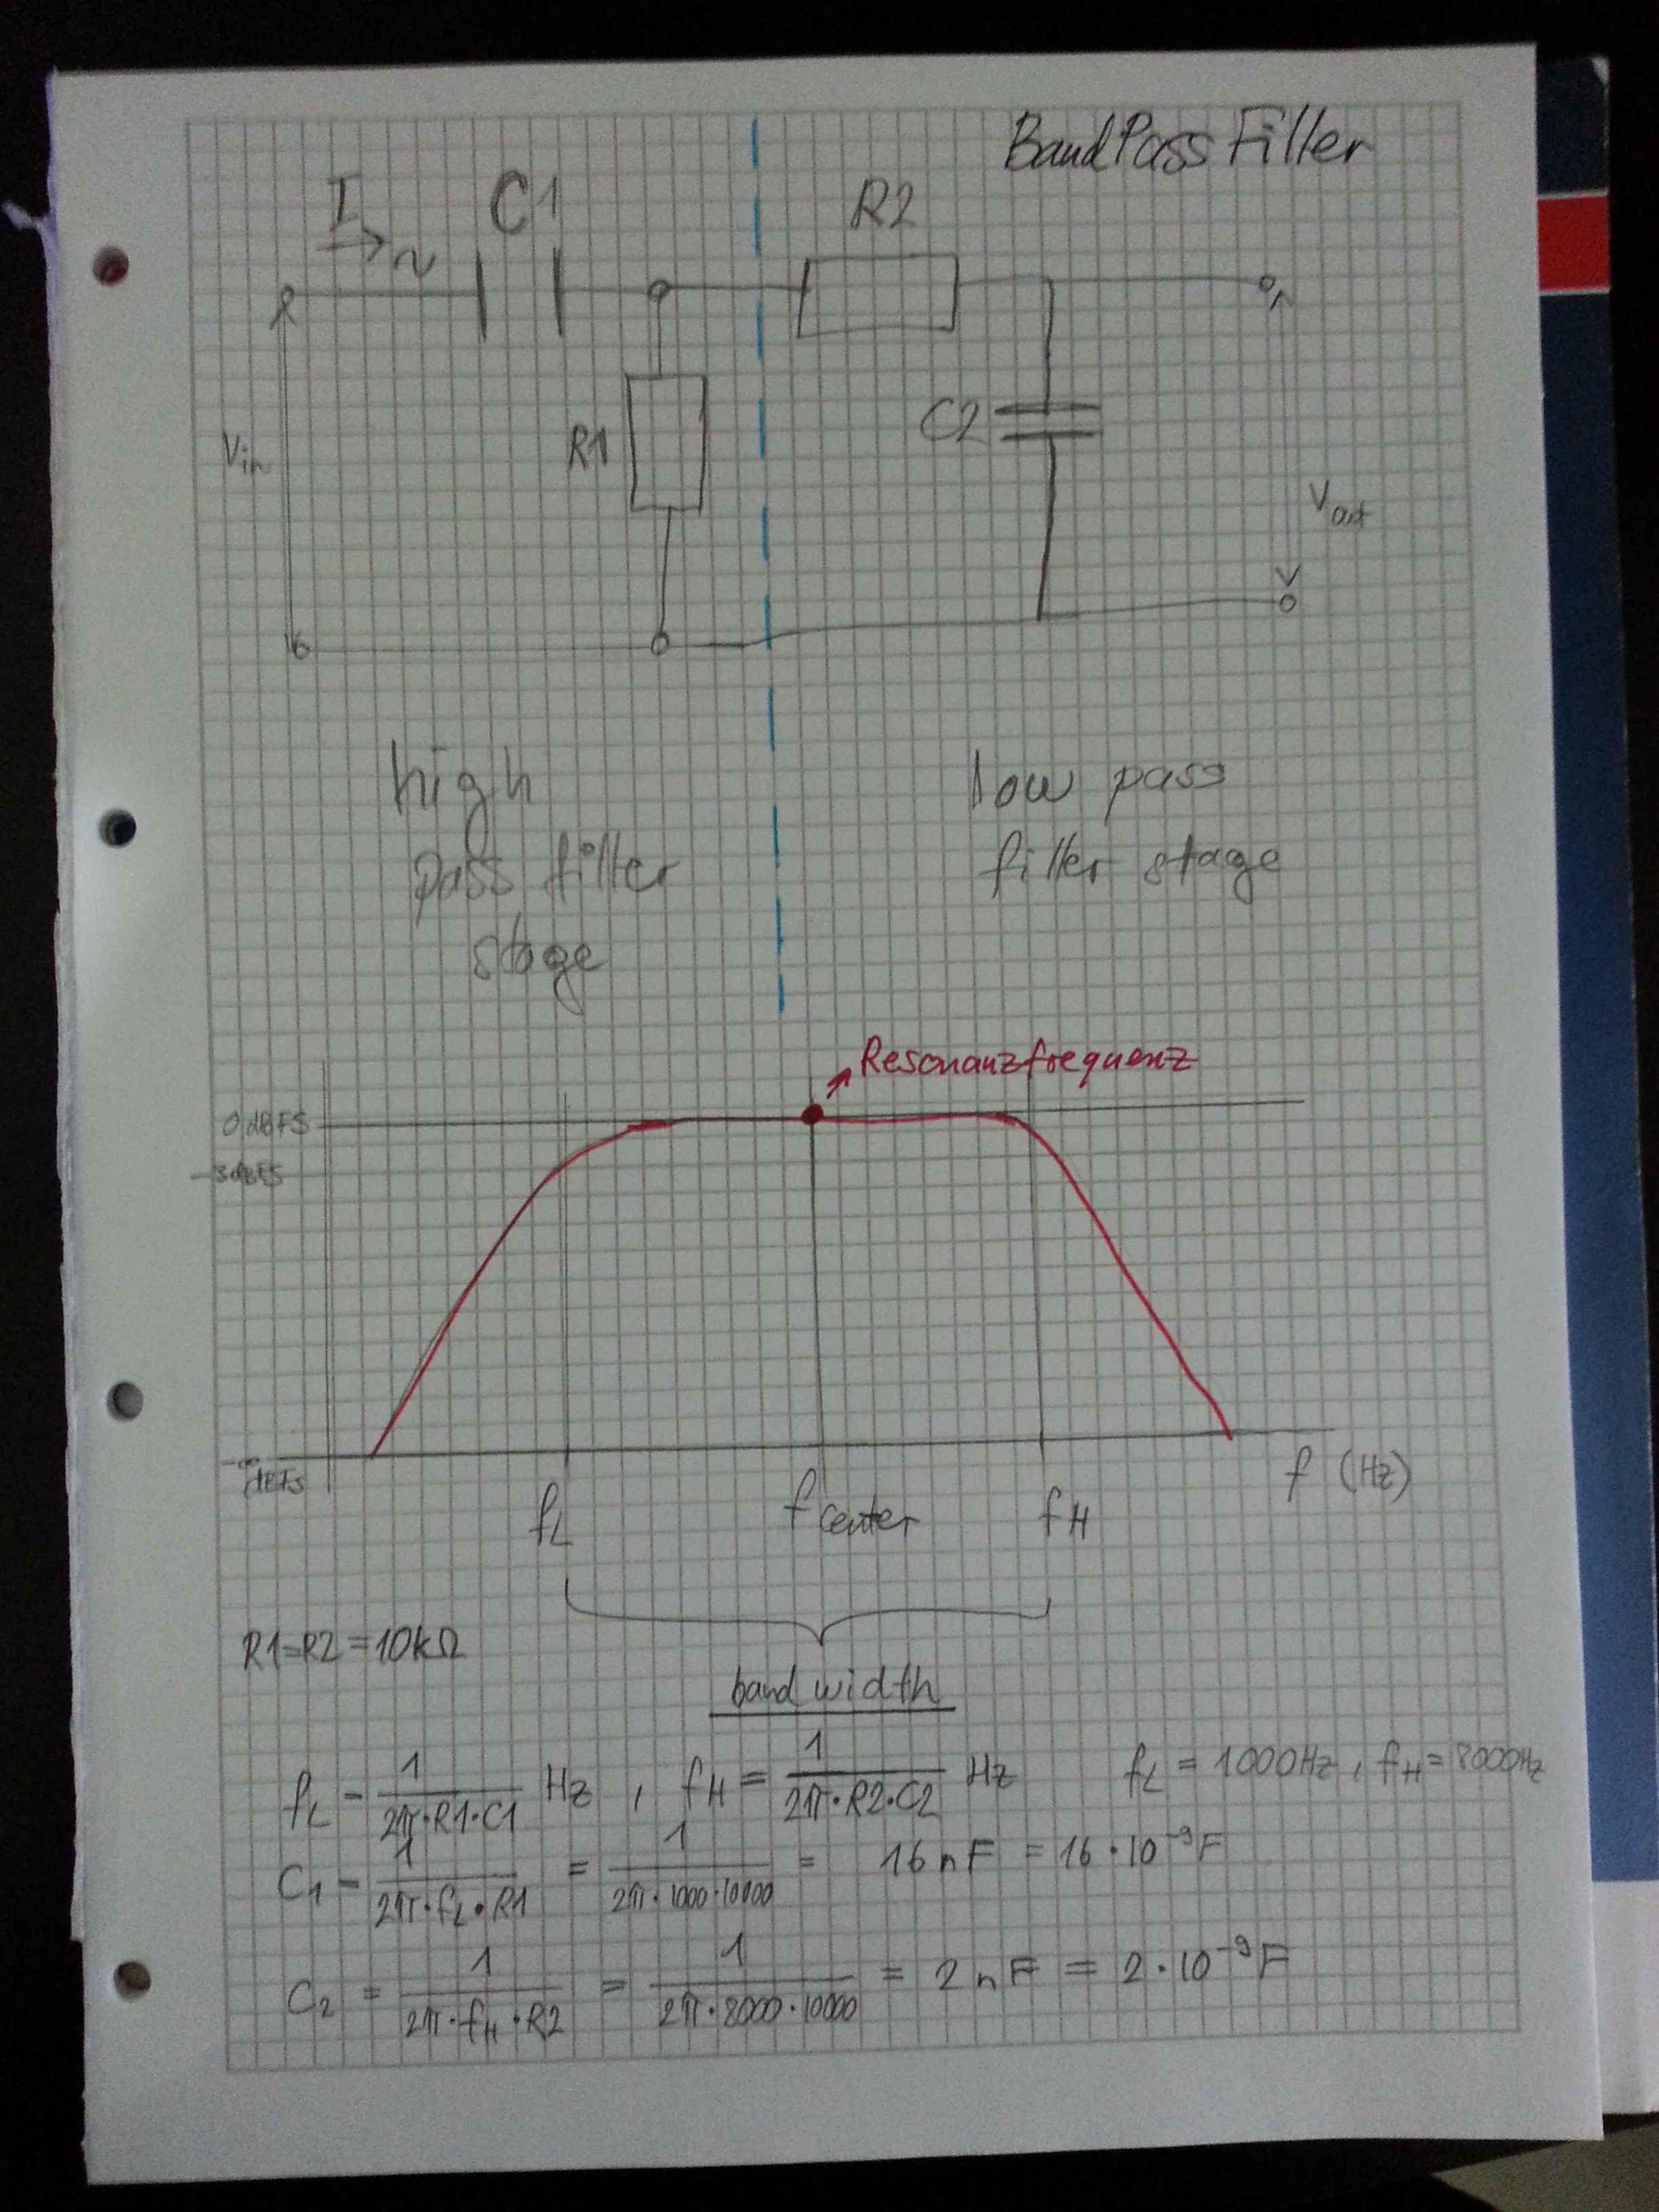 BandPass Filter
I → ~
C1
R2
Vin
R1
C2
Vout
high
pass filter
stage
low pass
filter stage
Resonanzfrequenz
0 dBFS
-3dBFS
-∞
dBFS
fL
fcenter
fH
f (Hz)
R1=R2=10kΩ
band width
fL = 1/(2π·R1·C1) Hz , fH = 1/(2π·R2·C2) Hz fL = 1000Hz , fH = 8000Hz
C1 = 1/(2π·fL·R1) = 1/(2π·1000·10000) = 16 nF = 16·10⁻⁹F
C2 = 1/(2π·fH·R2) = 1/(2π·8000·10000) = 2 nF = 2·10⁻⁹F